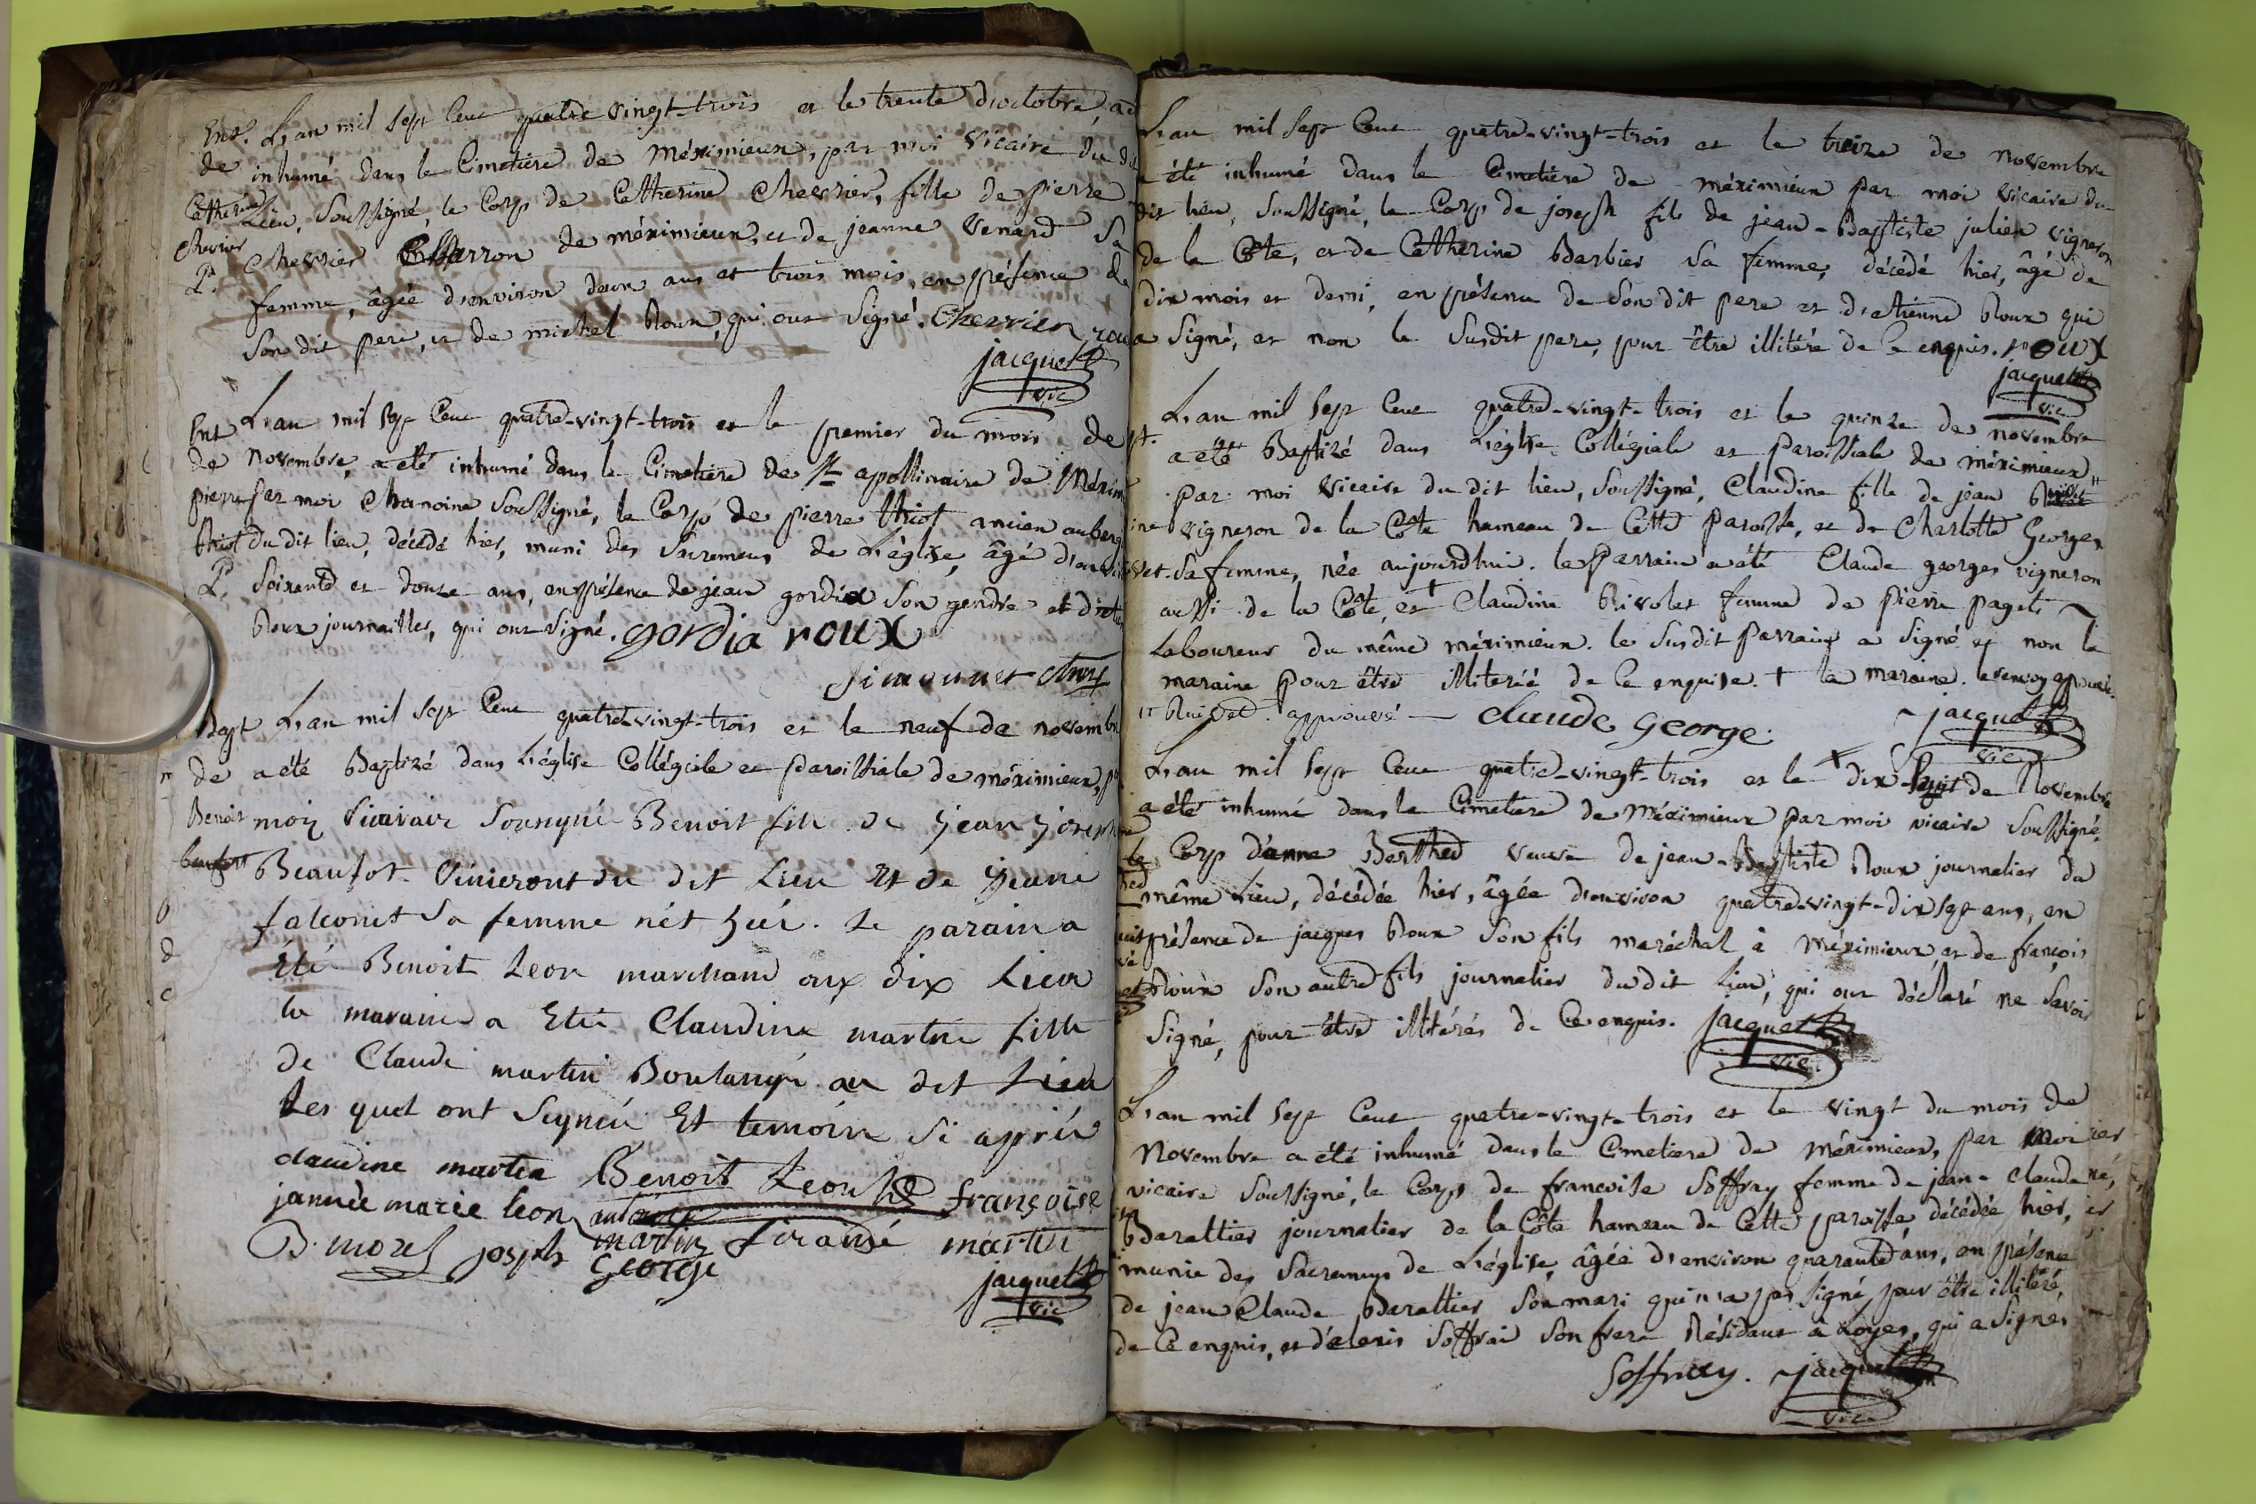 Ent.t L'an mil sept Cent quatre vingt-trois et le trente d'octobre, a été
de inhumé dans le Cimetiere de Méximieux, par moi vicaire du dit
Catherine Lieu, Soussigné, le Corp de Catherine Chevrier, fille de pierre
Chevrier Chevrier Charron de méximieux, et de jeanne Venard Sa
P. femme, âgée d'environ deux ans et trois mois, en présence de
Son dit pere, et de michel Roux, qui ont Signé. Cherrier, roux
jacquet
vic
Ent L'an mil sept Cent quatre-vingt-trois et le premier du mois de
de Novembre, a été inhumé dans le Cimetiere de St apollinaire de Méxim
pierre par moi Chanoine Soussigné, le Corp de pierre thiot ancien auberg
thiot du dit lieu, décédé hier, muni des Sacremens de L'église, âgé d'environ
P. Soixante et douze ans, en présence de jean gordia Son gendre et
Roux journaillier, qui ont Signé. gordia roux
Simonnet chne
Bapt L'an mil sept Cent quatre-vingt-trois et le neuf de novembre
de a été Baptizé dans L'église Collégiale et paroissiale de méximieux, p
Benoit moy vicaire Sousigné Benoit fils de jean joseph
beaufort Beaufot vigneront du dit Lieu Et de jeane
falconet Sa femme nét hiér. Le parain a
Eté Benoit Leon marchand aux dix Lieu
la maraine a Eté Claudine martin fille
de Claude martin Boulangé au dit Lieu
Les quel ont Signéé Et temoin Si aprés
claudine martin Benoit Leon françoise
jannete marie leon antoine martin
B. morel joseph martin firamé
George
jacquet
vic
L'an mil Sept Cent quatre-vingt-trois et le treize de novembre
a été inhumé dans le Cimetiere de méximieux par moi vicaire du
dit lieu, Soussigné, le Corp de joseph fils de jean-Baptiste julien vigneron
de la Côte, et de Catherine Barbier Sa femme, décédé hier, âgé de
dix mois et demi, en présence de Son dit pere et d'etienne Roux qui
a Signé, et non le Susdit pere, pour être illitéré de Ce enquis. roux
jacquet
vic
L'an mil Sept Cent quatre-vingt-trois et le quinze de novembre
a été Baptizé dans L'église Collégiale et paroissiale de méximieux
par moi vicaire du dit lieu, Soussigné, Claudine fille de jean
vigneron de la Côte hameau de Cette paroisse, et de Charlotte Georges
Sa femme, née aujourdhui. le parrain a été Claude georges vigneron
aussi de la Côte, et † Claudine Rivolet femme de pierre paget
Laboureur du même méximieux. le Susdit parrain a Signé et non la
maraine pour être illiterée de Ce enquise. † la maraine. le renvoy approuvé.
approuvé — claude george.
jacquet
vic
L'an mil Sept Cent quatre-vingt-trois et le dix-huit de Novembre
a été inhumé dans le Cimetiere de Méximieux par moi vicaire Soussigné
le Corp d'anne Berthed veuve de jean-Baptiste Roux journalier du
même Lieu, décédée hier, âgée d'environ quatre-vingt-dix sept ans, en
présence de jacques Roux Son fils maréchal à Méximieux et de françois
Roux Son autre fils journalier du dit Lieu, qui ont déclaré ne Savoir
Signé, pour être illitérés de Ce enquis. jacquet
vic
L'an mil Sept Cent quatre-vingt-trois et le vingt du mois de
Novembre a été inhumé dans le Cimetiere de Méximieux, par moi
vicaire Soussigné, le Corp de francoise Soffray femme de jean-Claude
Barattier journalier de la Côte hameau de Cette paroisse, décédée hier,
munie des Sacremens de L'église, âgée d'environ quarante ans, en présence
de jean Claude Barattier Son mari qui n'a pas Signé pour être illitéré,
de Ce enquis, et d'alexis Soffrai Son frere Résidant à Loyes, qui a Signé.
Soffray. jacquet
vic